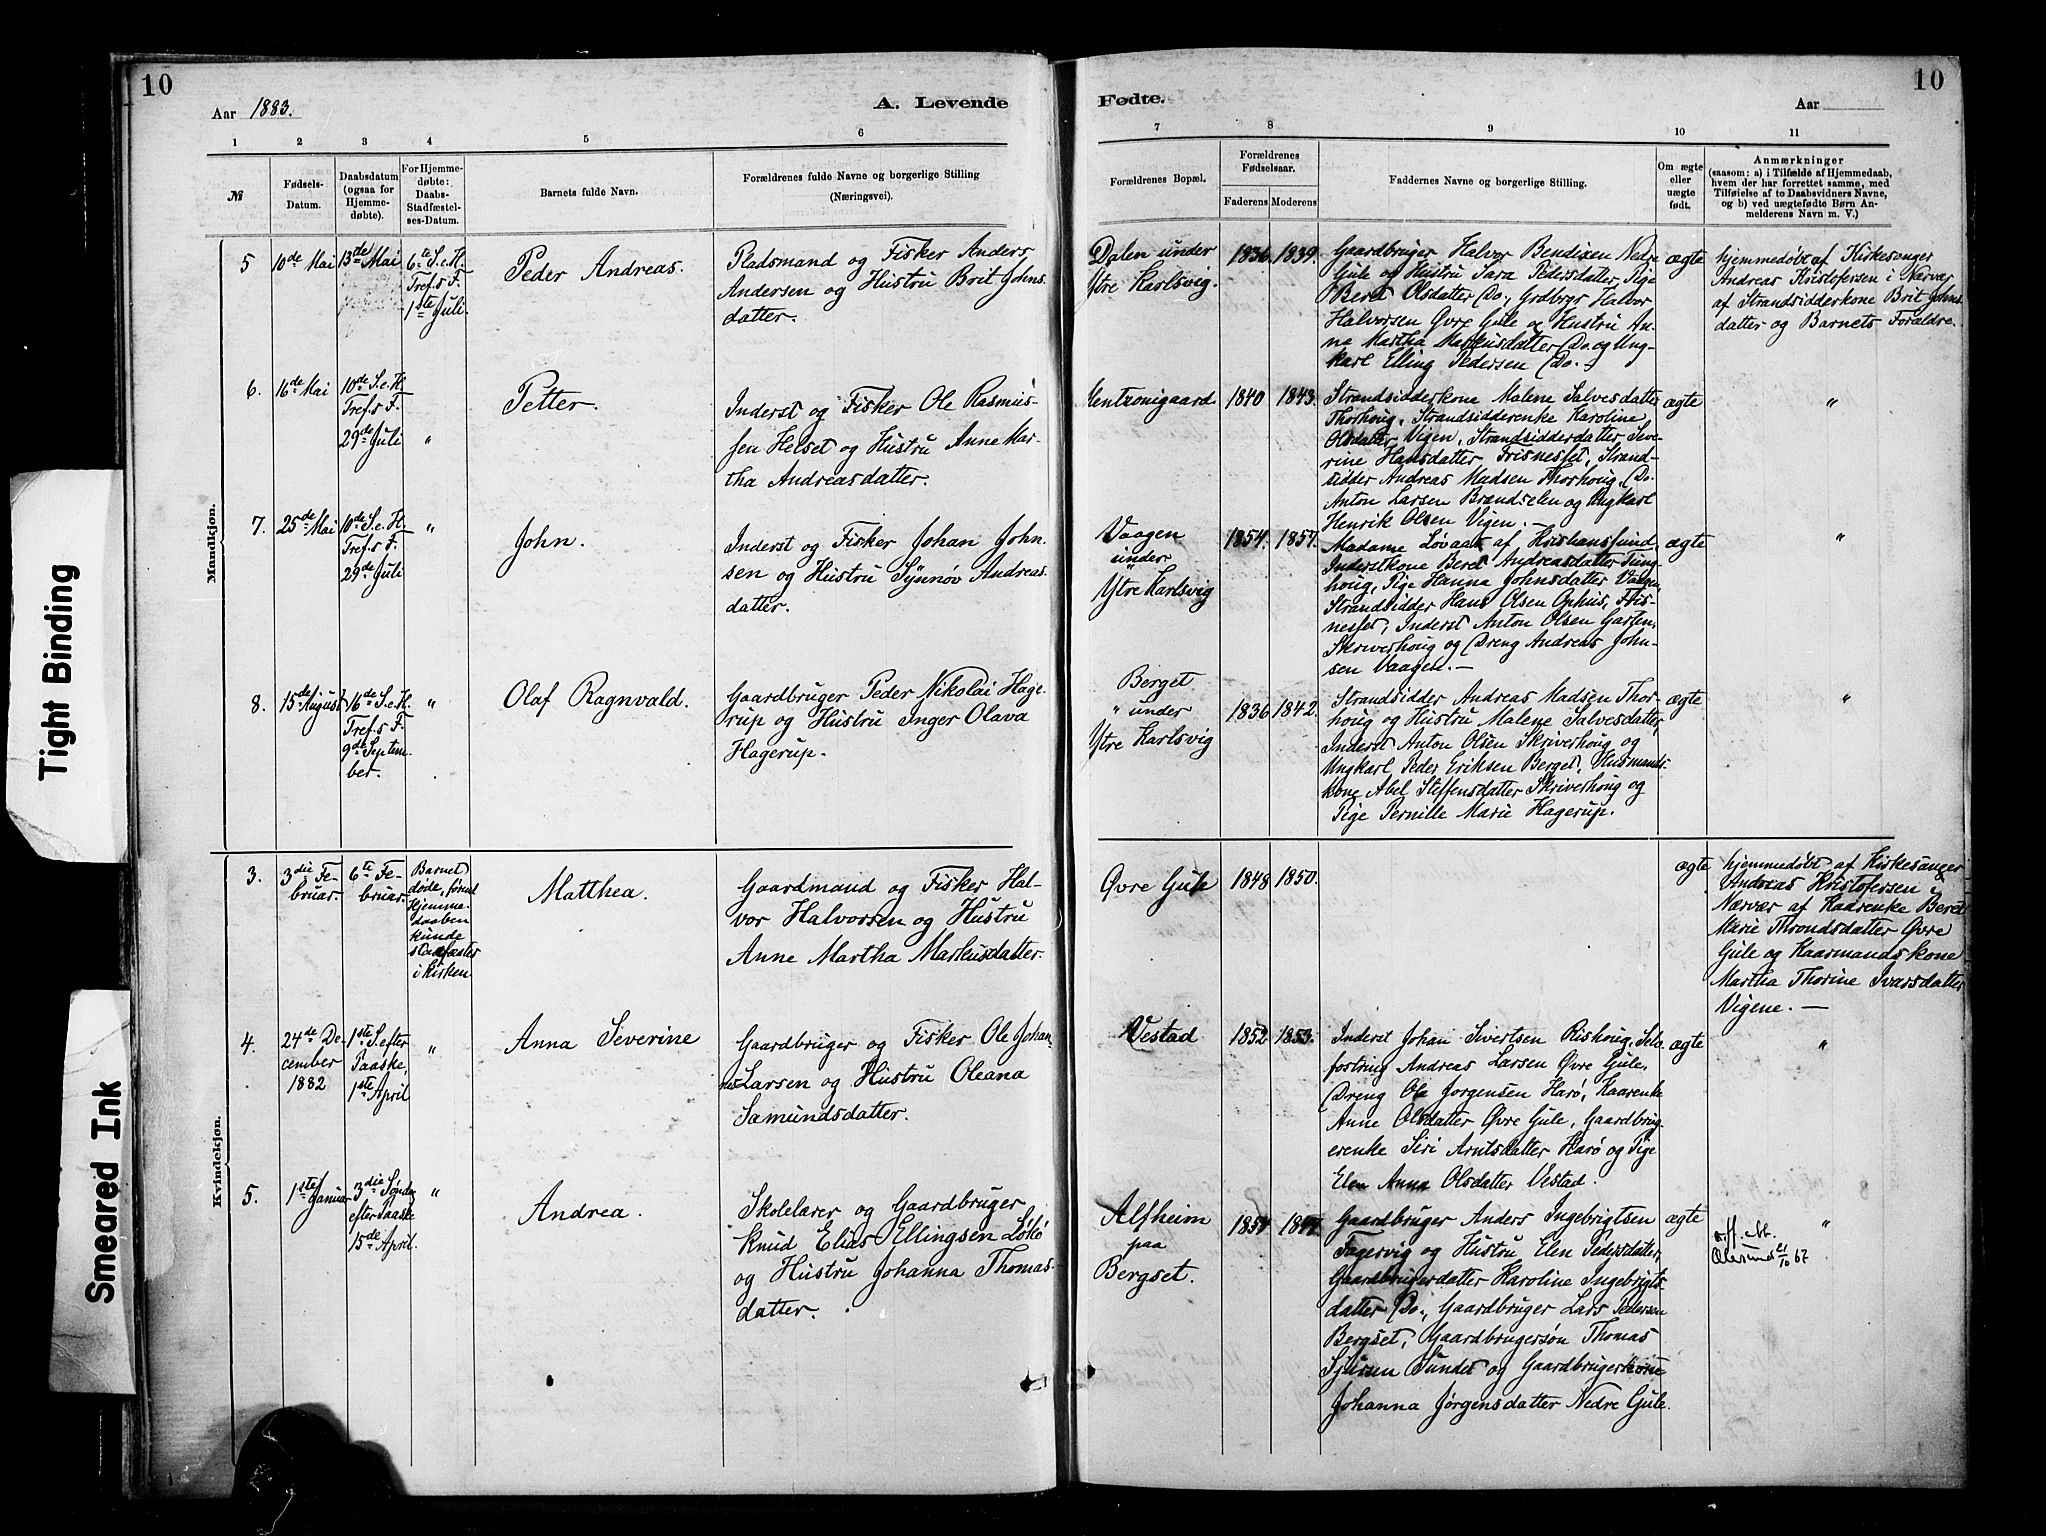 10
Aar 1883.
A. Levende
1 2 3 4 5 6
№
Fødsels-
Datum.
Daabsdatum
(ogsaa for
Hjemme-
døbte).
For Hjemme-
døbte:
Daabs-
Stadfæstel-
ses-Datum.
Barnets fulde Navn.
Forældrenes fulde Navne og borgerlige Stilling
(Næringsvei).
Mandkjøn.
5
10de Mai
13de Mai
6te S. e. H.
Tref.s F.
1ste Juli.
Peder Andreas.
Pladsmand og Fisker Anders
Andersen og Hustru Brit Johns
datter.
6.
16de Mai
10de S. e. H.
Tref.s F.
29de Juli
"
Petter.
Inderst og Fisker Ole Rasmus-
sen Helset og Hustru Anne Mar-
tha Andreasdatter.
7.
25de Mai
10de S. e. H.
Tref.s F.
29de Juli
"
John.
Inderst og Fisker Johan John
sen og Hustru Synnøv Andreas
datter.
8.
15de August
16de S. e. H.
Tref.s F.
9de Septem
ber.
"
Olaf Ragnvald.
Gaardbruger Peder Nikolai Hage-
rup og Hustru Inger Olava
Hagerup.
Kvindekjøn.
3.
3die Fe-
bruar.
6te Fe-
bruar.
Barnet
døde, førend
Hjemme-
daaben
kunde
stadfæstes
i Kirken
Matthea.
Gaardmand og Fisker Hal-
vor Halvorsen og Hustru
Anne Martha Markusdatter.
4.
24de De-
cember
1882
1ste S. efter
Paaske,
1ste April
"
Anna Severine
Gaardbruger og Fisker Ole Johan-
nes Larsen og Hustru Oleana
Samundsdatter.
5.
1ste Januar
3die Søndag
efter Paaske
15de April.
"
Andrea.
Skolelærer og Gaardbruger
Knud Elias Ellingsen Løkø
og Hustru Johanna Thomas-
datter.
Fødte.
Aar
10
7 8 9 10 11
Forældrenes Bopæl.
Forældrenes
Fødselsaar.
Faderens Moderens
Faddernes Navne og borgerlige Stilling.
Om ægte
eller
uægte
født.
Anmærkninger
(saasom: a) i Tilfælde af Hjemmedaab,
hvem der har forrettet samme, med
Tilføielse af to Daabsvidners Navne,
og b) ved uægtefødte Børn An-
melderens Navn m. V.)
Dalen under
Ytre Karlsvig.
1836. 1839.
Gaardbruger Halvor Bendixen Nedre
Gule og Hustru Sara Pedersdatter, Pige
Beret Olsdatter Do., Grdbrgr Halvor
Halvorsen Øvre Gule og Hustru An-
ne Martha Markusdatter Do. og Ung-
karl Elling Pedersen Do.
ægte
hjemmedøbt af Kirkesanger
Andreas Kristofersen i Nærvær
af Strandsidderkone Brit Johns
datter og Barnets Forældre.
1840 1843.
Strandsidderkone Malene Salvesdatter
Thorhoug, Strandsidderenke Karoline
Olsdatter Vigen, Strandsidderdatter Seve-
rine Hansdatter Frisnesset, Strand-
sidder Andreas Madsen Thorhoug, Do.
Anton Larsen og Ungkarl
Henrik Olsen Vigen.
ægte
"
Vaagen
under
Ytre Karlsvig
1854. 1857.
Madame Løvaas af Kristiansund,
Inderstkone Beret Andreasdatter Tung
houg, Pige Hanna Johnsdatter Vaagen,
Strandsidder Hans Olsen Ophus, Fris-
nesset, Inderst Anton Olsen Garten,
Skriverhoug og Dreng Andreas John-
sen Vaagen. —
ægte
"
Berget
" under
Ytre Karlsvig
1836 1842.
Strandsidder Andreas Madsen Thor-
houg og Hustru Malene Salvesdatter,
Inderst Anton Olsen Skriverhoug og
Ungkarl Peder Eriksen Berget, Husmands-
kone Abel Steffensdatter Skriverhoug og
Pige Pernille Marie Hagerup.
ægte
"
Øvre Gule
1848 1850.
ægte
hjemmedøbt af Kirkesanger
Andreas Kristofersen
Nærvær af Kaarenke Beret
Marie Throndsdatter Øvre
Gule og Kaarmandskone
Martha Thorine Ivarsdatter
Vigene. —
Vestad
1852 1853.
Inderst Johan Sivertsen Rishoug,
Andreas Larsen Øvre Gule,
Dreng Ola Jorgensen Harø, Kaarenke
Anne Olsdatter Øvre Gule, Gaardbrug-
erenke Siri Arntsdatter Harø og Pige
Elen Anna Olsdatter Vestad.
ægte
"
Alfheim
paa
Bergset.
1854 1844.
Gaardbruger Anders Ingebrigtsen
Fagervig og Hustru Elen Pedersdatter,
Gaardbrugerdatter Karoline Ingebrigts-
datter Do., Gaardbruger Lars Pedersen
Bergset, Gaardbrugersøn Thomas
Sjursen Sundet og Gaardbrugerkone
Johanna Jørgensdatter Nedre Gule.
ægte
"
Tight Binding
Smeared Ink